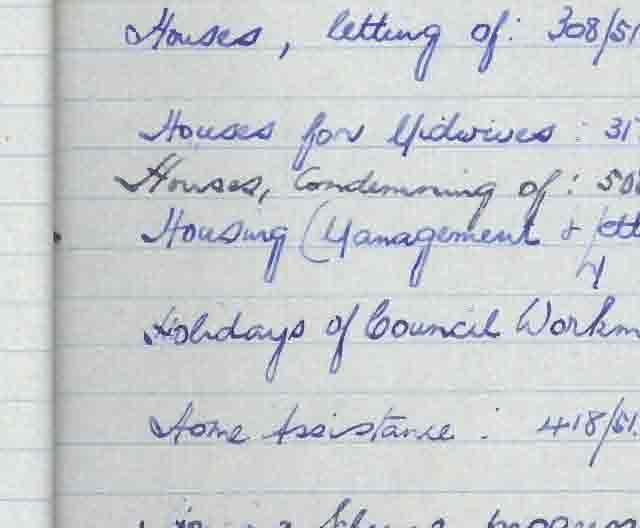 Houses, letting of: 308/51
Houses for Midwives: 31
Houses, Condemning of: 50
Housing (Management &
4
Holidays of Council Workm
Home Assistance: 418/51